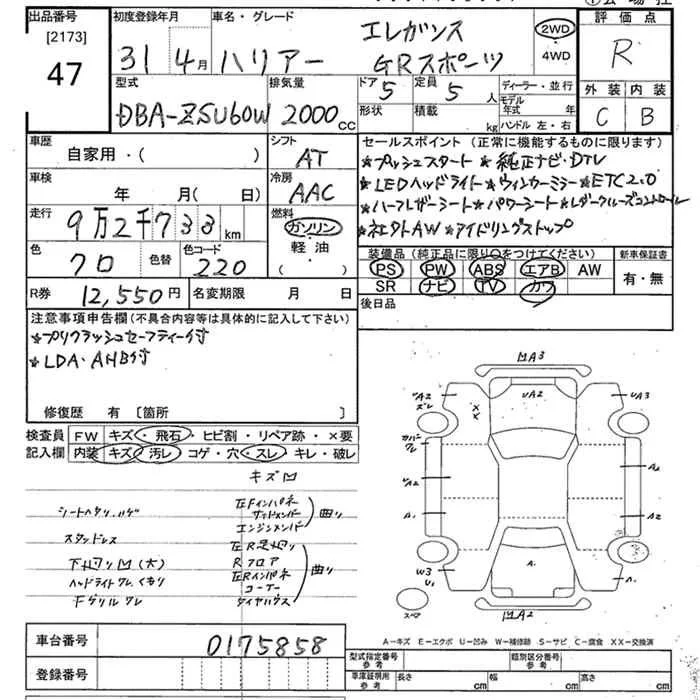 出品番号
[2173]
47
初度登録年月
31 4月
車名・グレード
エレガンス
ハリアー GRスポーツ
2WD
4WD
評価点
R
外装 内装
C B
型式
DBA-ZSU60W
排気量
2000cc
ドア 定員
5 5人
形状 積載
kg
ディーラー・並行
モデル年式 年
ハンドル 左・右
車歴
自家用・( )
シフト
AT
車検
年 月(日)
冷房
AAC
走行
9万2千733km
燃料
ガソリン
軽・油
( ・ )
色
クロ
色替
色コード
220
R券 12,550円
名変期限 月 日
セールスポイント (正常に機能するものに限ります)
★プッシュスタート ★純正ナビ・DTV
★LEDヘッドライト ★ウィンカーミラー ★ETC2.0
★ハーフレザーシート ★パワーシート ★レダークルーズコントロール
★社外AW ★アイドリングストップ
装備品(純正品に限り○をつけてください)
PS PW ABS エアB AW
SR ナビ TV カワ
新車保証書
有・無
後日品
注意事項申告欄(不具合内容等は具体的に記入して下さい)
★プリクラッシュセーフティー付
★LDA・AHB付
修復歴 有 [箇所 ]
検査員記入欄
FW キズ・飛石・ヒビ割・リペア跡・×要
内装 キズ・汚レ・コゲ・穴・スレ・キレ・破レ
キズ凹
シートヘタリ、ハゲ
スタッドレス
下廻り凹(大)
ヘッドライトワレ、くもり
Fグリルワレ
左Fインパネ
サイドメンバー
エンジンメンバー
曲り
左R足廻り
Rフロア
左Rインパネ
コーナー
タイヤハウス
曲り
凹A3
UA2
A2
ズレ
UA3
カバーワレ
UA2
A1
A2
A1
A2
W3
U1
A.
A.
スペア
凹A2
A-キズ E-エクボ U-凹み W-補修跡 S-サビ C-腐食 XX-交換済
車台番号
0175858
登録番号
型式指定番号
参考
類別区分番号
参考
車庫証明用
参考
長さ cm
幅 cm
高さ cm